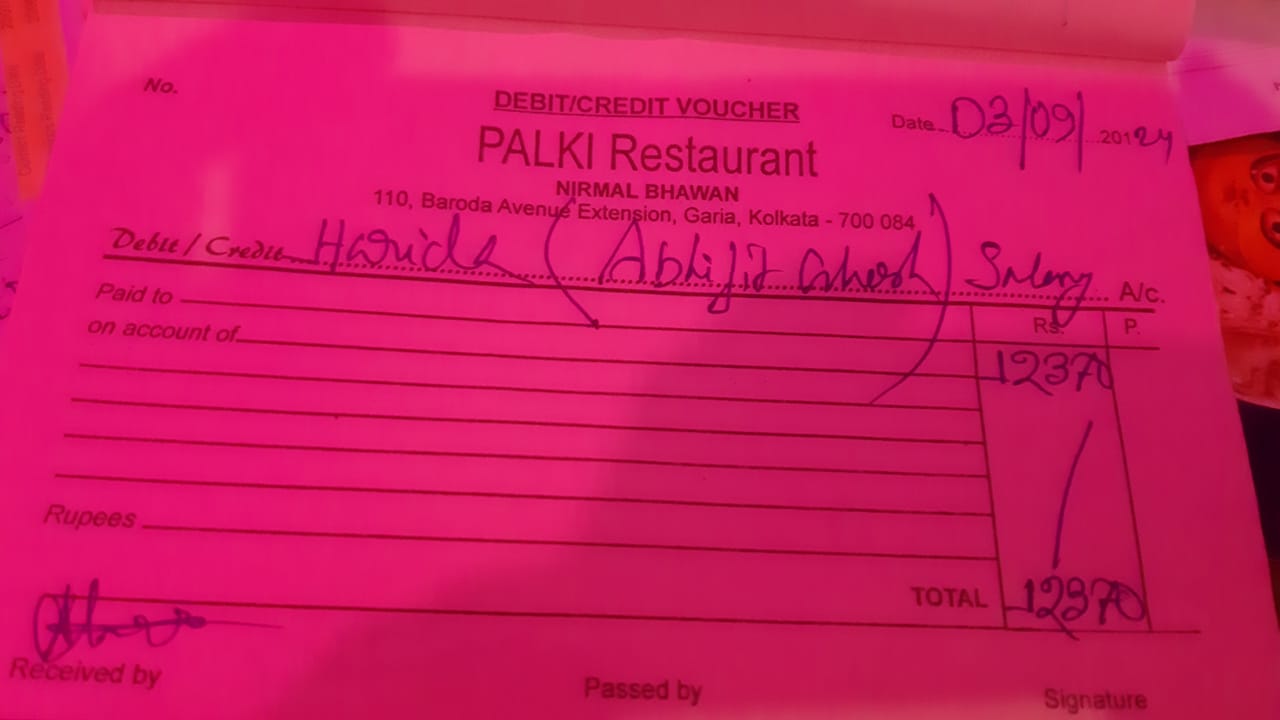 No.
DEBIT/CREDIT VOUCHER
Date 03/09/ 20124
PALKI Restaurant
NIRMAL BHAWAN
110, Baroda Avenue Extension, Garia, Kolkata - 700 084
Debit / Credit Harida (Abhijit Ghosh) Salary A/c.
Paid to Rs. P.
on account of 12370
Rupees
TOTAL 12370
Received by Passed by Signature